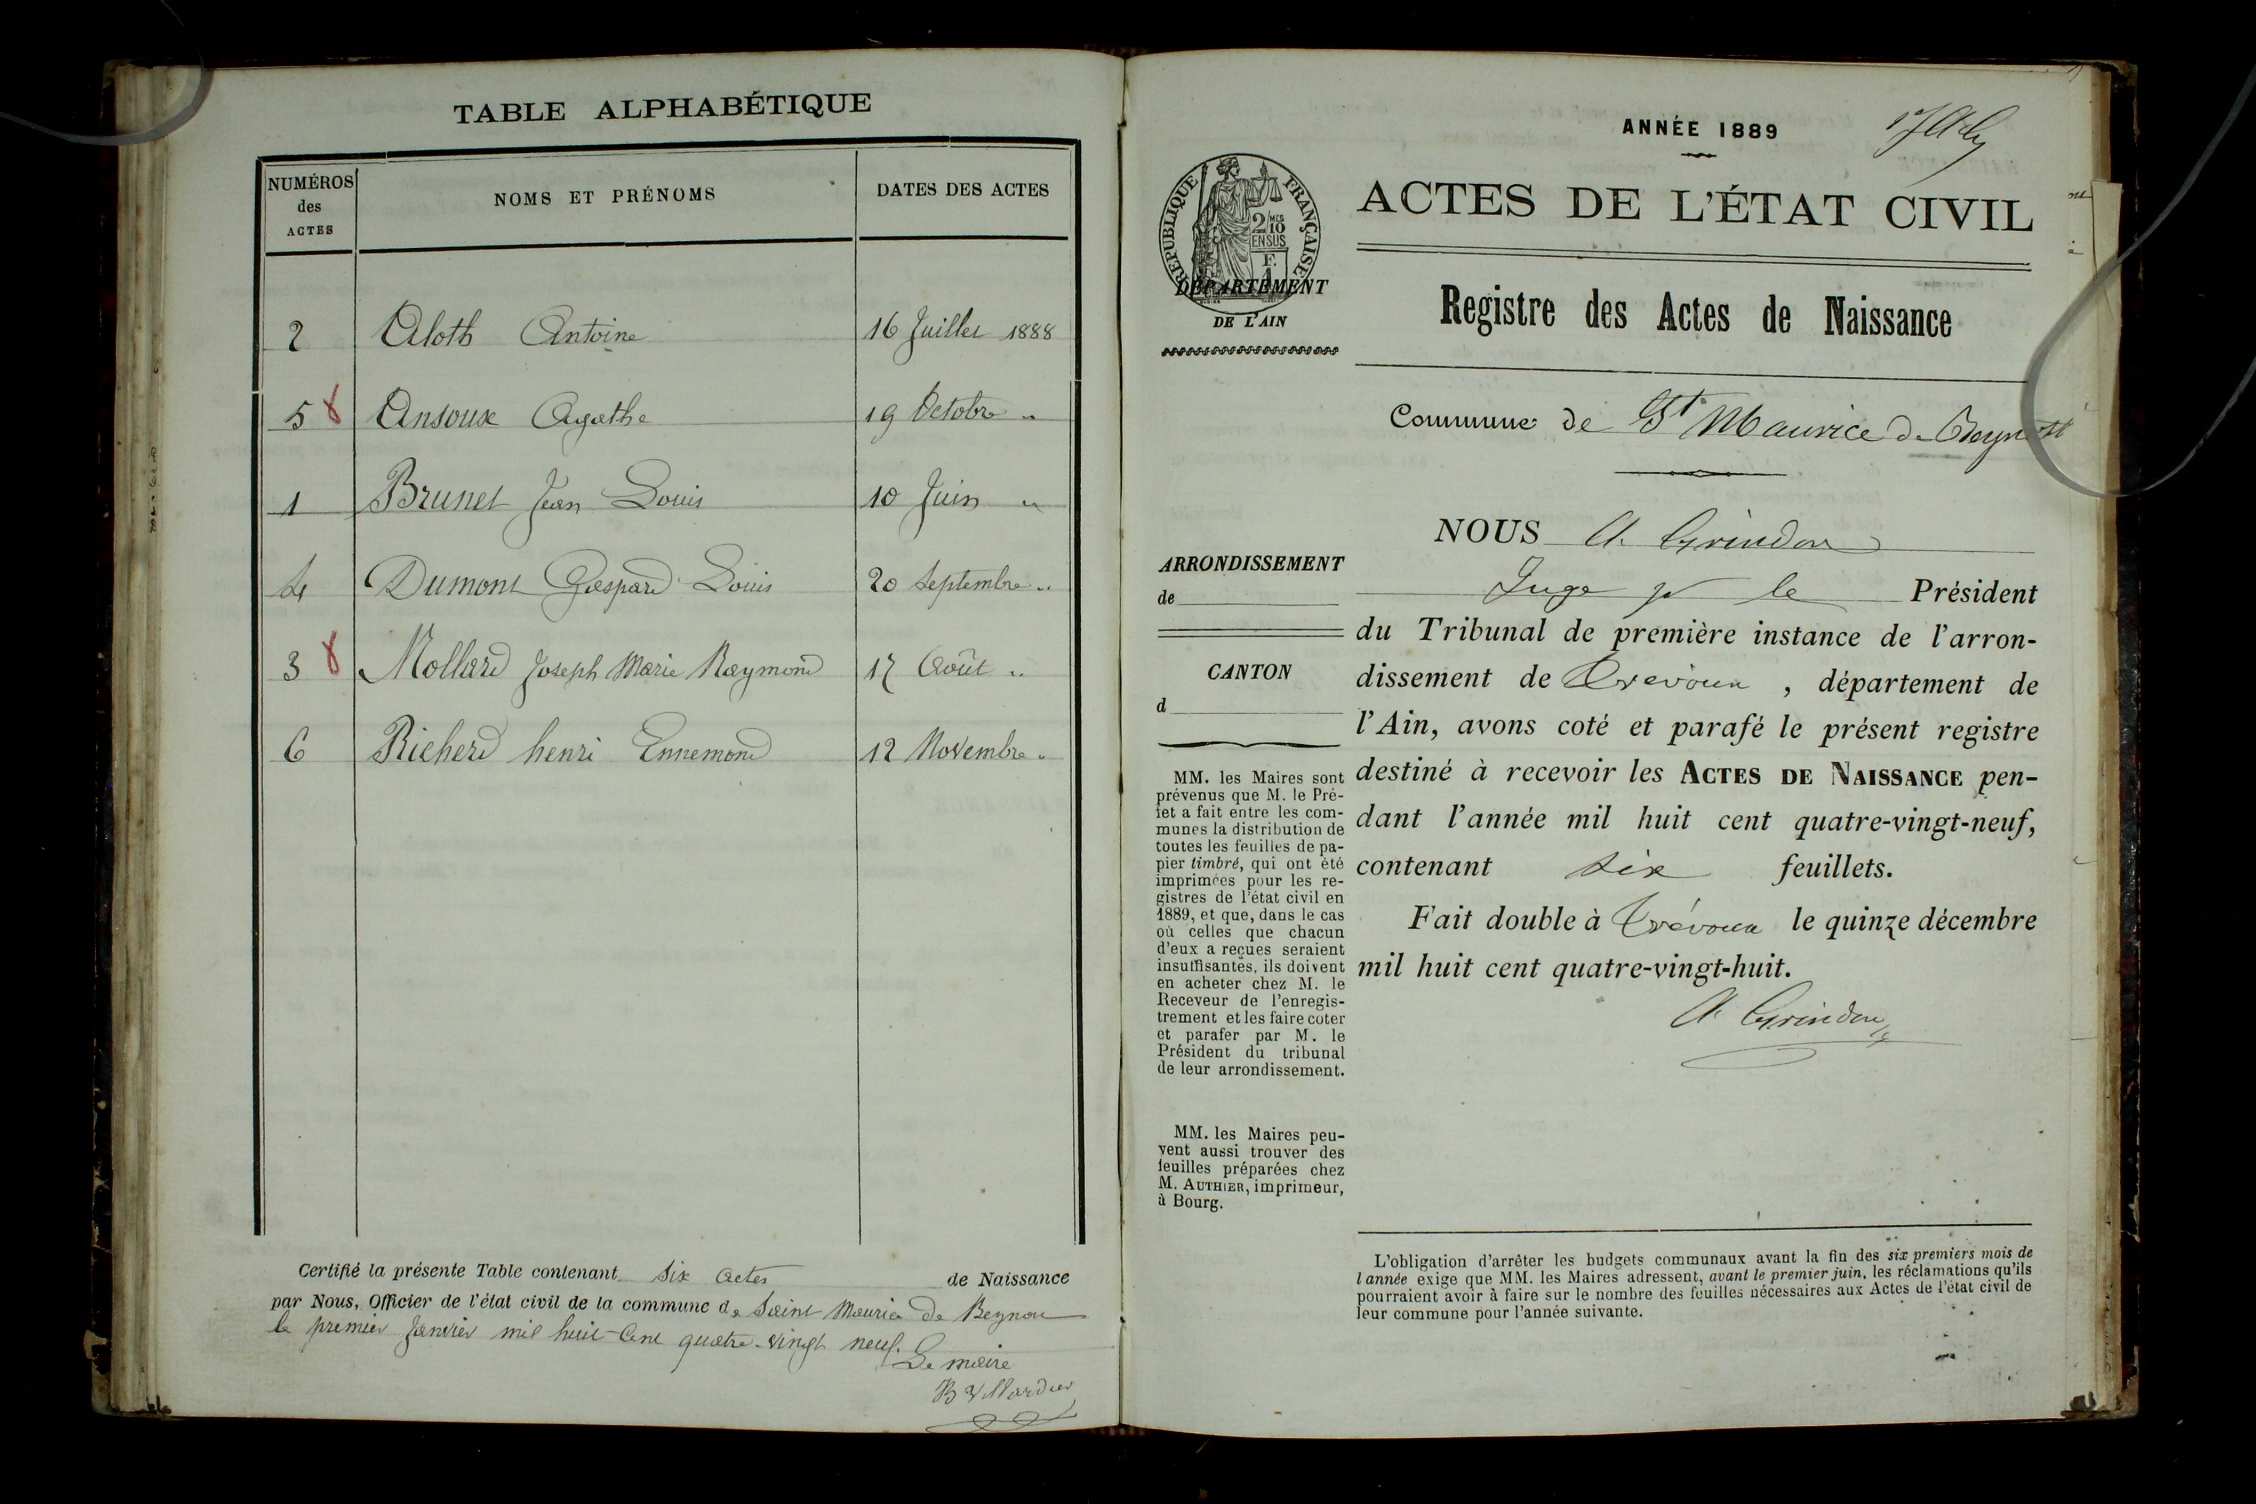 TABLE ALPHABÉTIQUE
NUMÉROS des ACTES
NOMS ET PRÉNOMS
DATES DES ACTES
2 Aloth Antoine 16 Juillet 1888
5 Ansoux Agathe 19 Octobre "
1 Brunet Jean Louis 10 Juin "
4 Dumont Gaspard Louis 20 Septembre "
3 Mollard Joseph Marie Raymond 17 Août "
6 Richerd henri Ennemond 12 Novembre "
Certifié la présente Table contenant six actes de Naissance
par Nous, Officier de l'état civil de la commune de Saint Maurice de Beynou
le premier Janvier mil huit-cent quatre-vingt neuf.
Le maire
B Villardier
ANNÉE 1889
RÉPUBLIQUE FRANÇAISE
2/10 EN SUS
DÉPARTEMENT
DE L'AIN
ACTES DE L'ÉTAT CIVIL
Registre des Actes de Naissance
Commune de St Maurice de Beynost
ARRONDISSEMENT
de
CANTON
d
MM. les Maires sont
prévenus que M. le Pré-
fet a fait entre les com-
munes la distribution de
toutes les feuilles de pa-
pier timbré, qui ont été
imprimées pour les re-
gistres de l'état civil en
1889, et que, dans le cas
où celles que chacun
d'eux a reçues seraient
insuffisantes, ils doivent
en acheter chez M. le
Receveur de l'enregis-
trement et les faire coter
et parafer par M. le
Président du tribunal
de leur arrondissement.
MM. les Maires peu-
vent aussi trouver des
feuilles préparées chez
M. AUTHIER, imprimeur,
à Bourg.
NOUS A. Grindon
Juge pr le Président
du Tribunal de première instance de l'arron-
dissement de Trévoux , département de
l'Ain, avons coté et parafé le présent registre
destiné à recevoir les ACTES DE NAISSANCE pen-
dant l'année mil huit cent quatre-vingt-neuf,
contenant six feuillets.
Fait double à Trévoux le quinze décembre
mil huit cent quatre-vingt-huit.
A. Grindon
L'obligation d'arrêter les budgets communaux avant la fin des six premiers mois de
l'année exige que MM. les Maires adressent, avant le premier juin, les réclamations qu'ils
pourraient avoir à faire sur le nombre des feuilles nécessaires aux Actes de l'état civil de
leur commune pour l'année suivante.